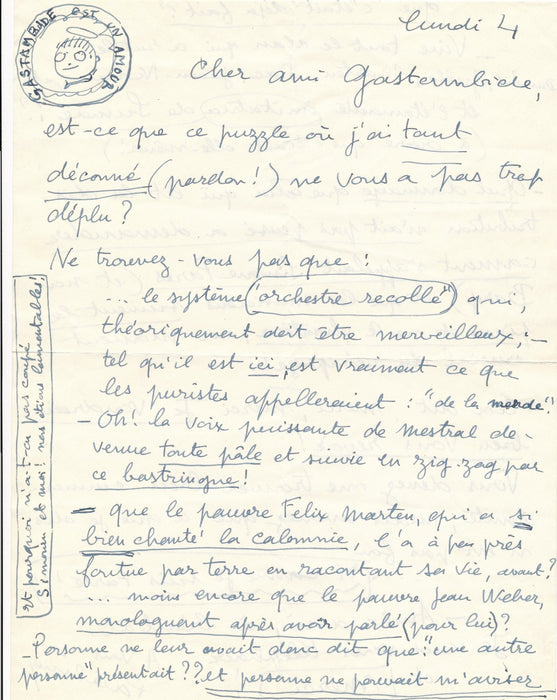 GASTAMBIDE EST UN AMOUR
lundi 4
Cher ami Gastembide,
est-ce que ce puzzle où j'ai tant
déconné (pardon!) ne vous a pas trop
déplu?
Ne trouvez-vous pas que:
... le système "orchestre recollé" qui,
théoriquement doit être merveilleux: -
tel qu'il est ici, est vraiment ce que
les puristes appelleraient: "de la merde"
- Oh! la voix puissante de Mestral de-
venue toute pâle et suivie en zig-zag par
ce bastringue!
- que le pauvre Felix Marten, qui a si
bien chanté la calomnie, l'a à peu près
foutue par terre en racontant sa vie, avant?
... moins encore que le pauvre Jean Weber,
monologuent après avoir parlé (pour lui)?
- Personne ne leur avait donc dit que "une autre
personne" présentait?? et personne ne pouvait m'aviser
et pourquoi n'a-t-on pas coupé
Simoun et moi! nous étions lamentables!